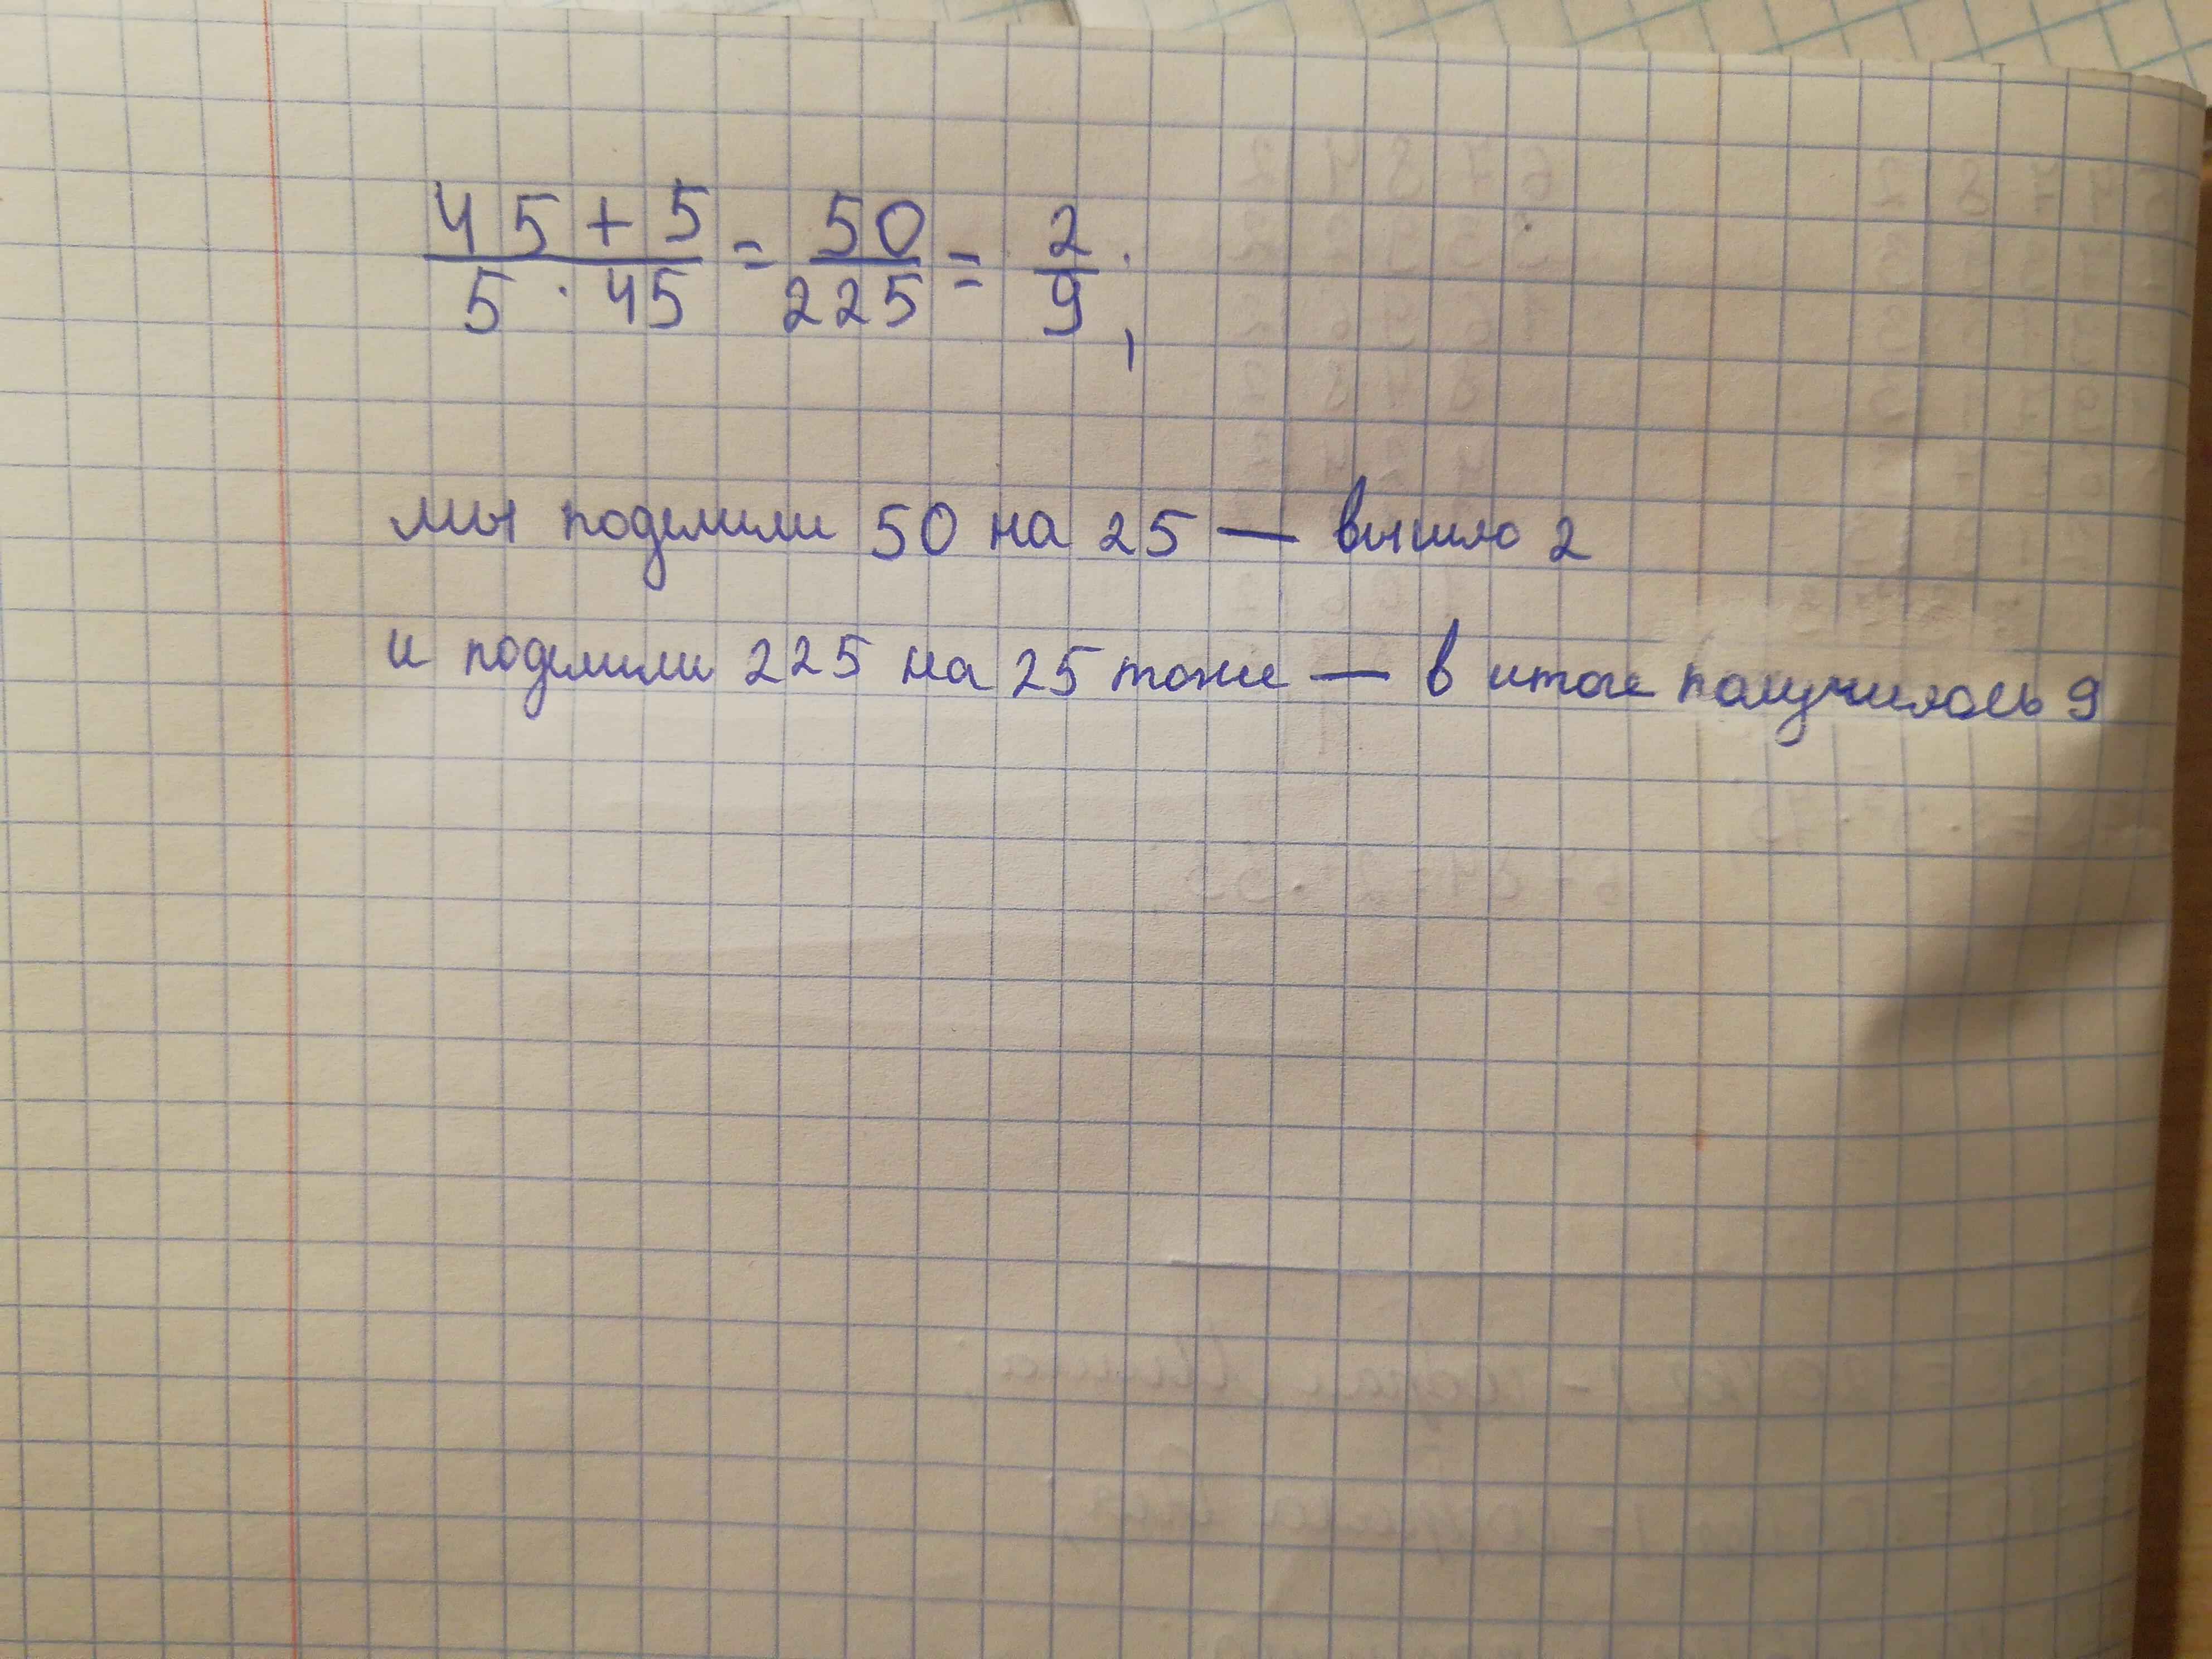 45 + 5 / 5 · 45 = 50 / 225 = 2 / 9 ;
мы поделили 50 на 25 — вышло 2
и поделили 225 на 25 тоже — в итоге получилось 9